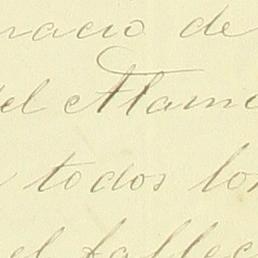 nacio de
del Alame
todos los
el fallec